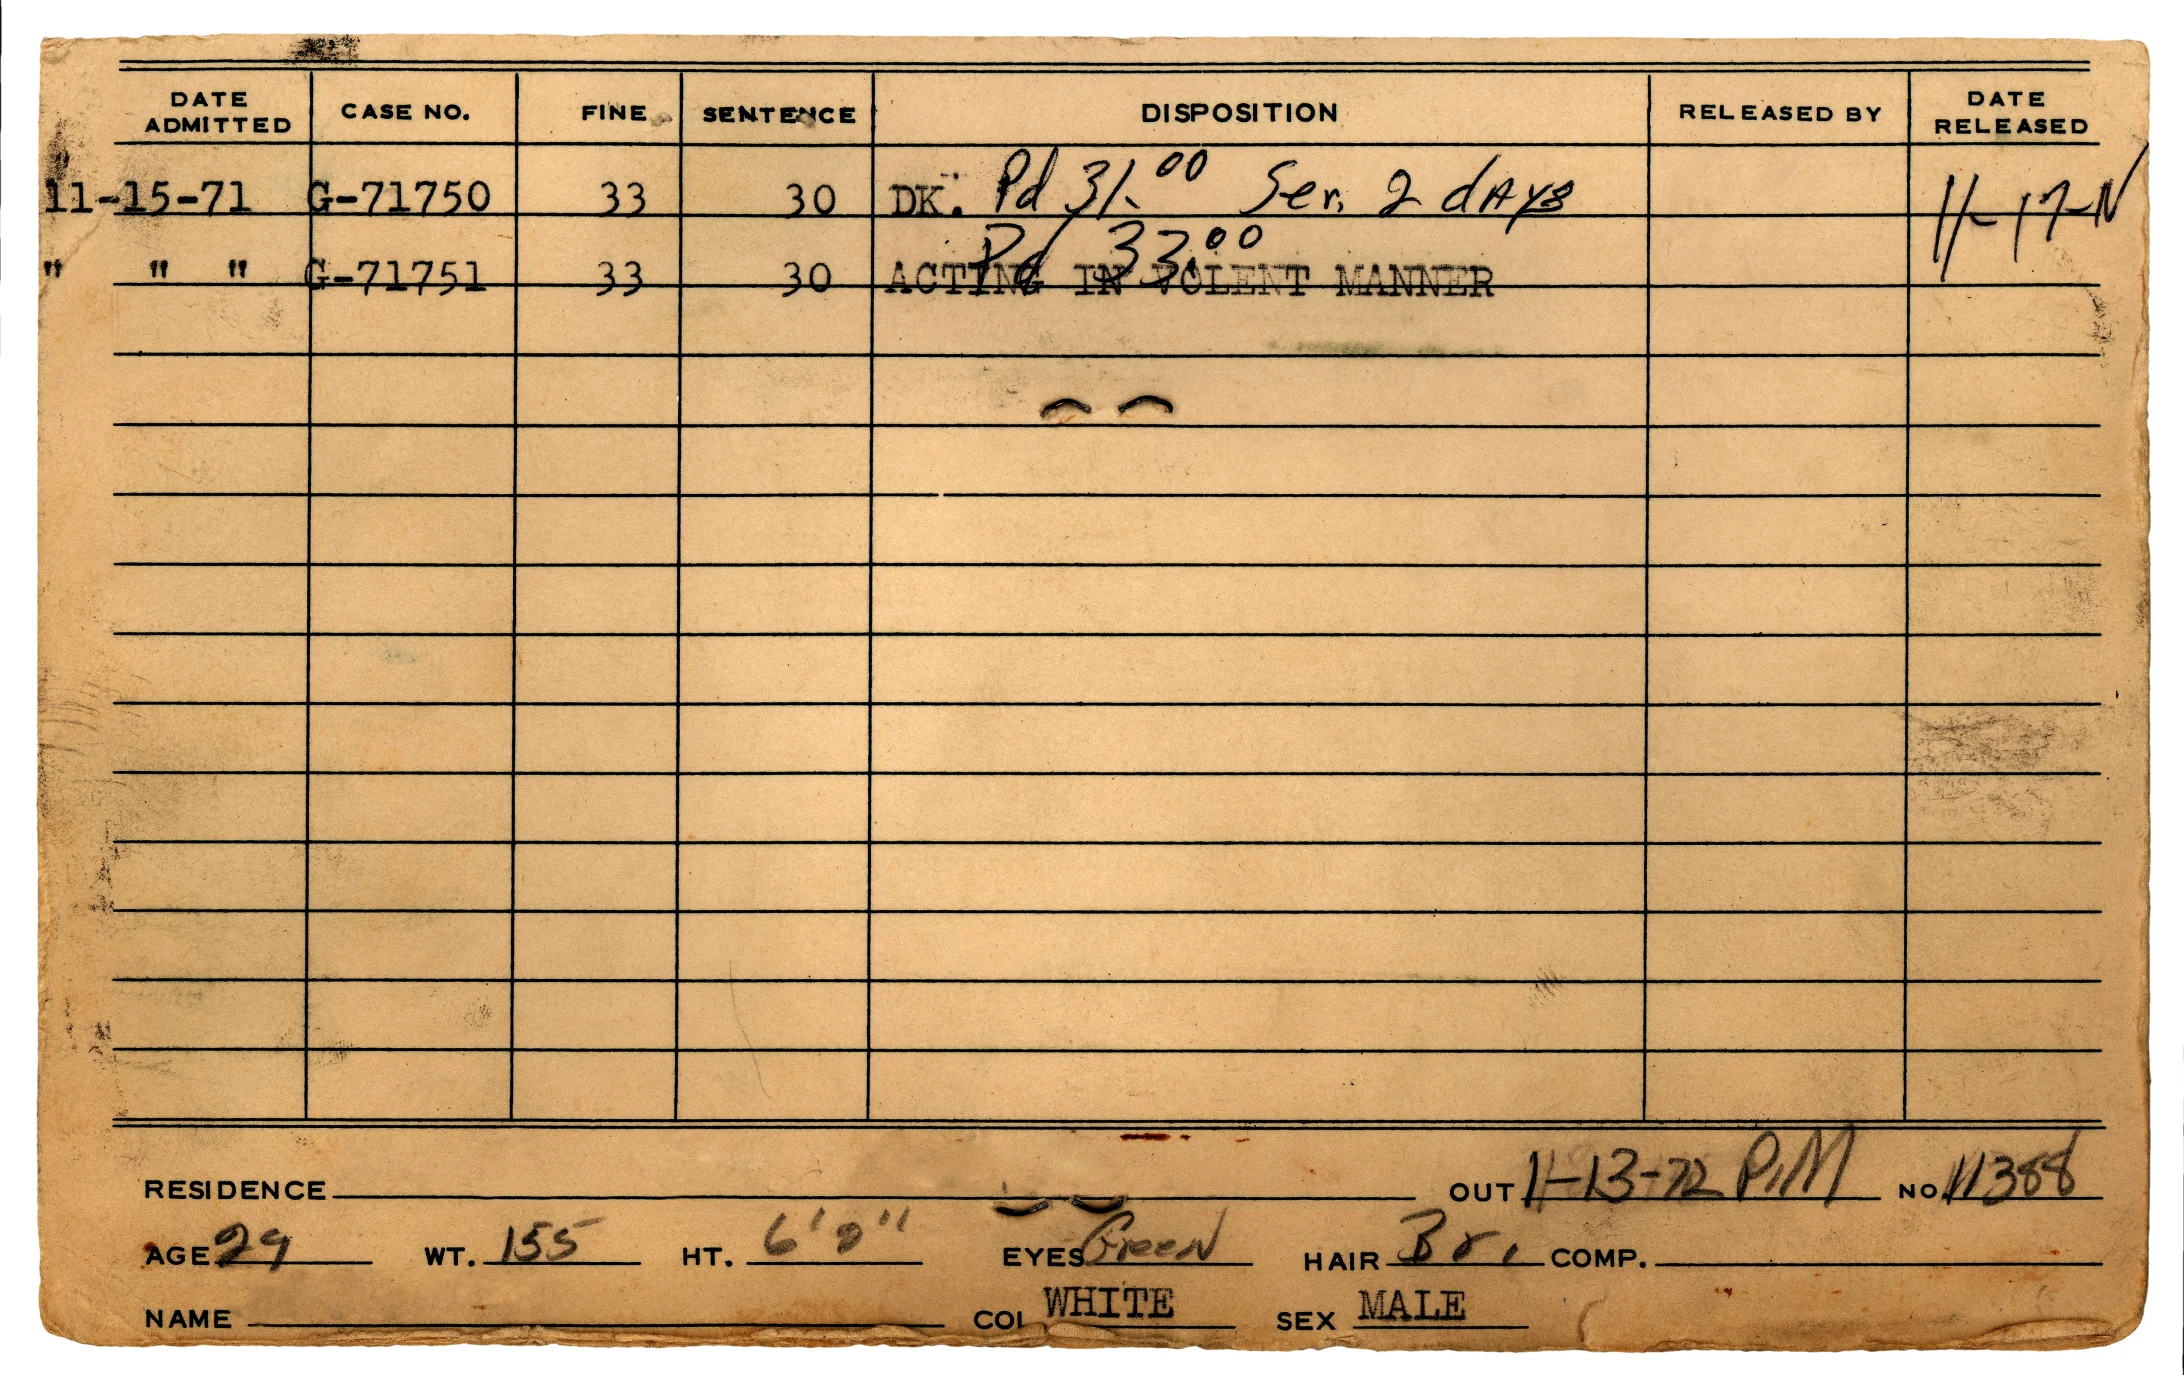 DATE ADMITTED CASE NO. FINE SENTENCE DISPOSITION RELEASED BY DATE RELEASED
11-15-71 G-71750 33 30 DK. Pd 31.00 Ser. 2 dAys 11-17-N
" " " G-71751 33 30 ACTING IN VOLENT MANNER Pd 33.00
RESIDENCE OUT 11-13-72 P.M NO. 11388
AGE 29 WT. 155 HT. 6'2" EYES Green HAIR Br. COMP.
NAME COL WHITE SEX MALE